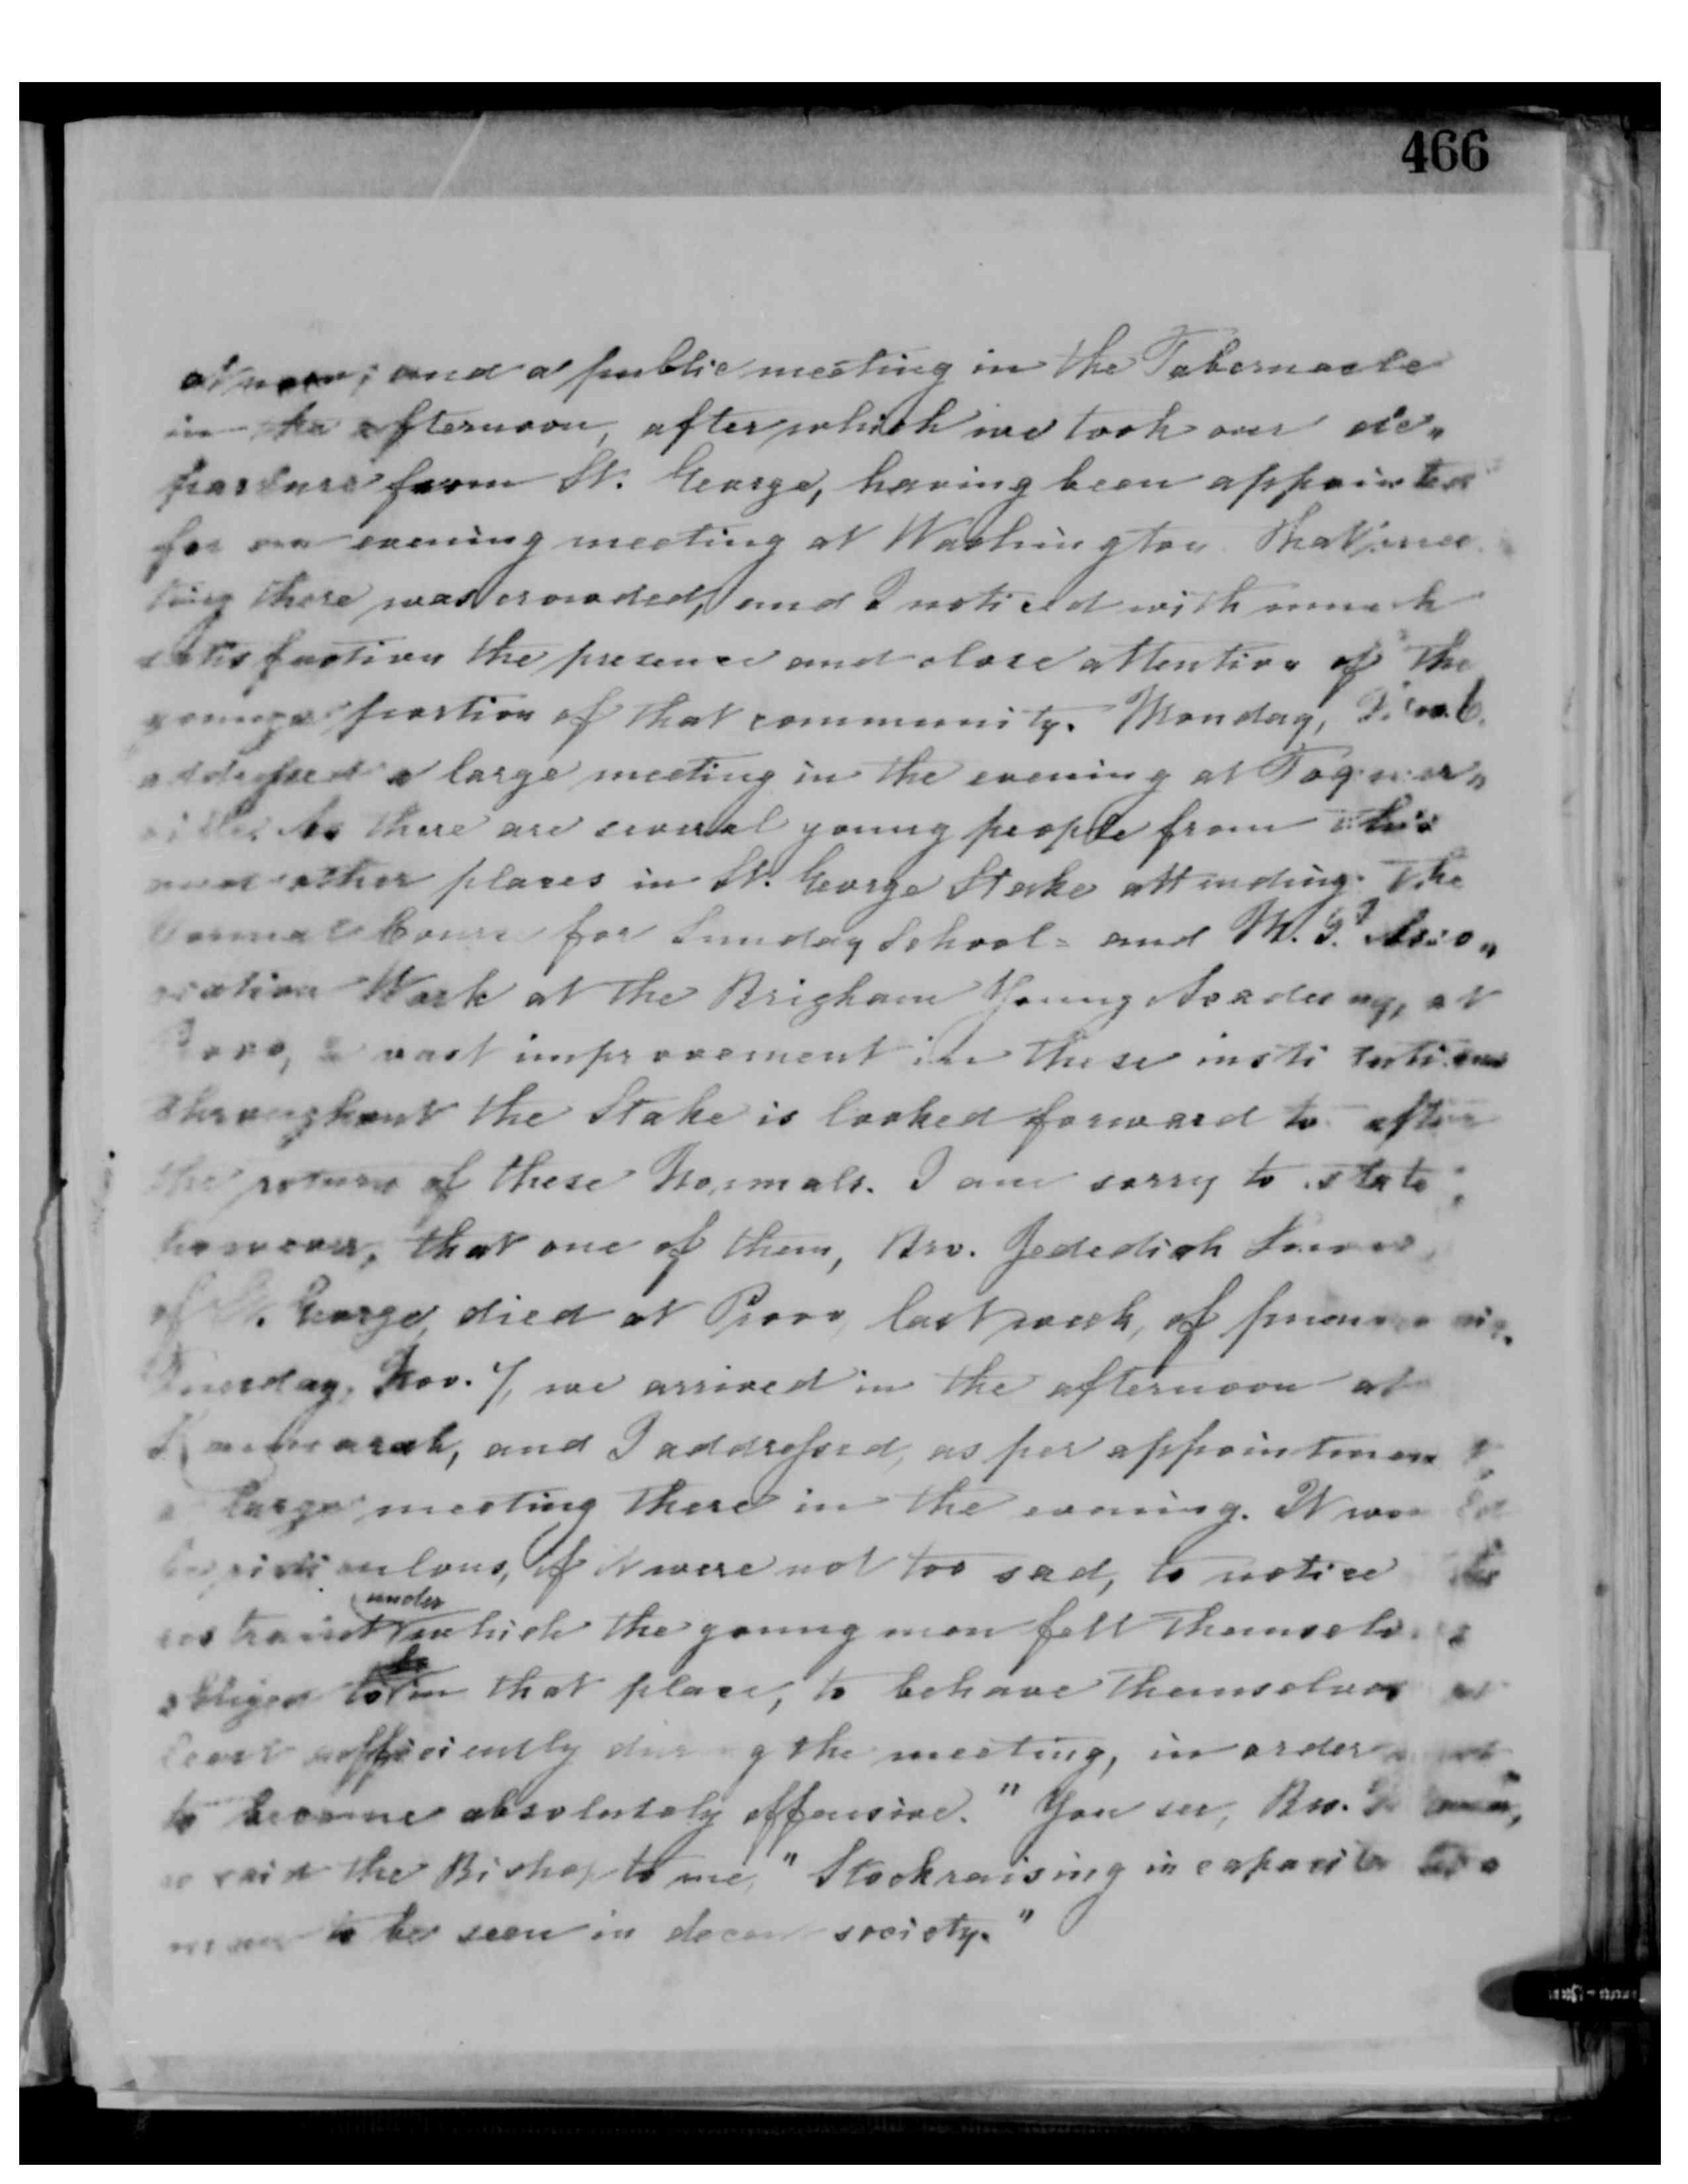 466
at noon; and a public meeting in the Tabernacle
in the afternoon, after which we took our de„
parture from St. George, having been appointed
for an evening meeting at Washington. That mee
ting there was crowded, and I noticed with much
satisfaction the presence and close attention of the
younger portion of that community. Monday, Nov. 6.
addressed a large meeting in the evening at Toquer„
ville. As there are several young people from this
and other places in St. George Stake attending the
Normal Course for Sunday School= and M. I. Asso„
ciation Work at the Brigham Young Academy, at
Provo, a vast improvement in these institutions
throughout the Stake is looked forward to after
the return of these Normals. I am sorry to state,
however, that one of them, Bro. Jedediah Snow,
of St. George, died at Provo, last week, of pneumonia.
Tuesday, Nov. 7, we arrived in the afternoon at
Kannarah, and I addressed, as per appointment
a large meeting there in the evening. It would
be ridiculous, if it were not too sad, to notice the
restraint under which the young men felt themselves
obliged to in that place, to behave themselves at
least sufficiently during the meeting, in order not
to become absolutely offensive. "You see, Bro.
so said the Bishop to me, "Stockraising incapacitates a
man to be seen in decent society."